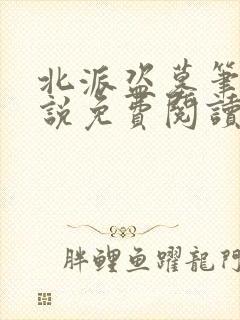 北派盜墓筆
說免費閱讀
胖鯉鱼躍龍門